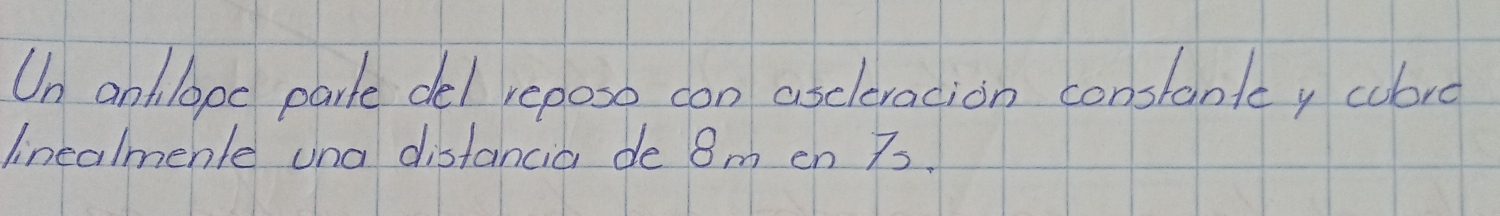 Un antílope parte del reposo con asceleración constante y cubre
linealmente una distancia de 8m en 7s.